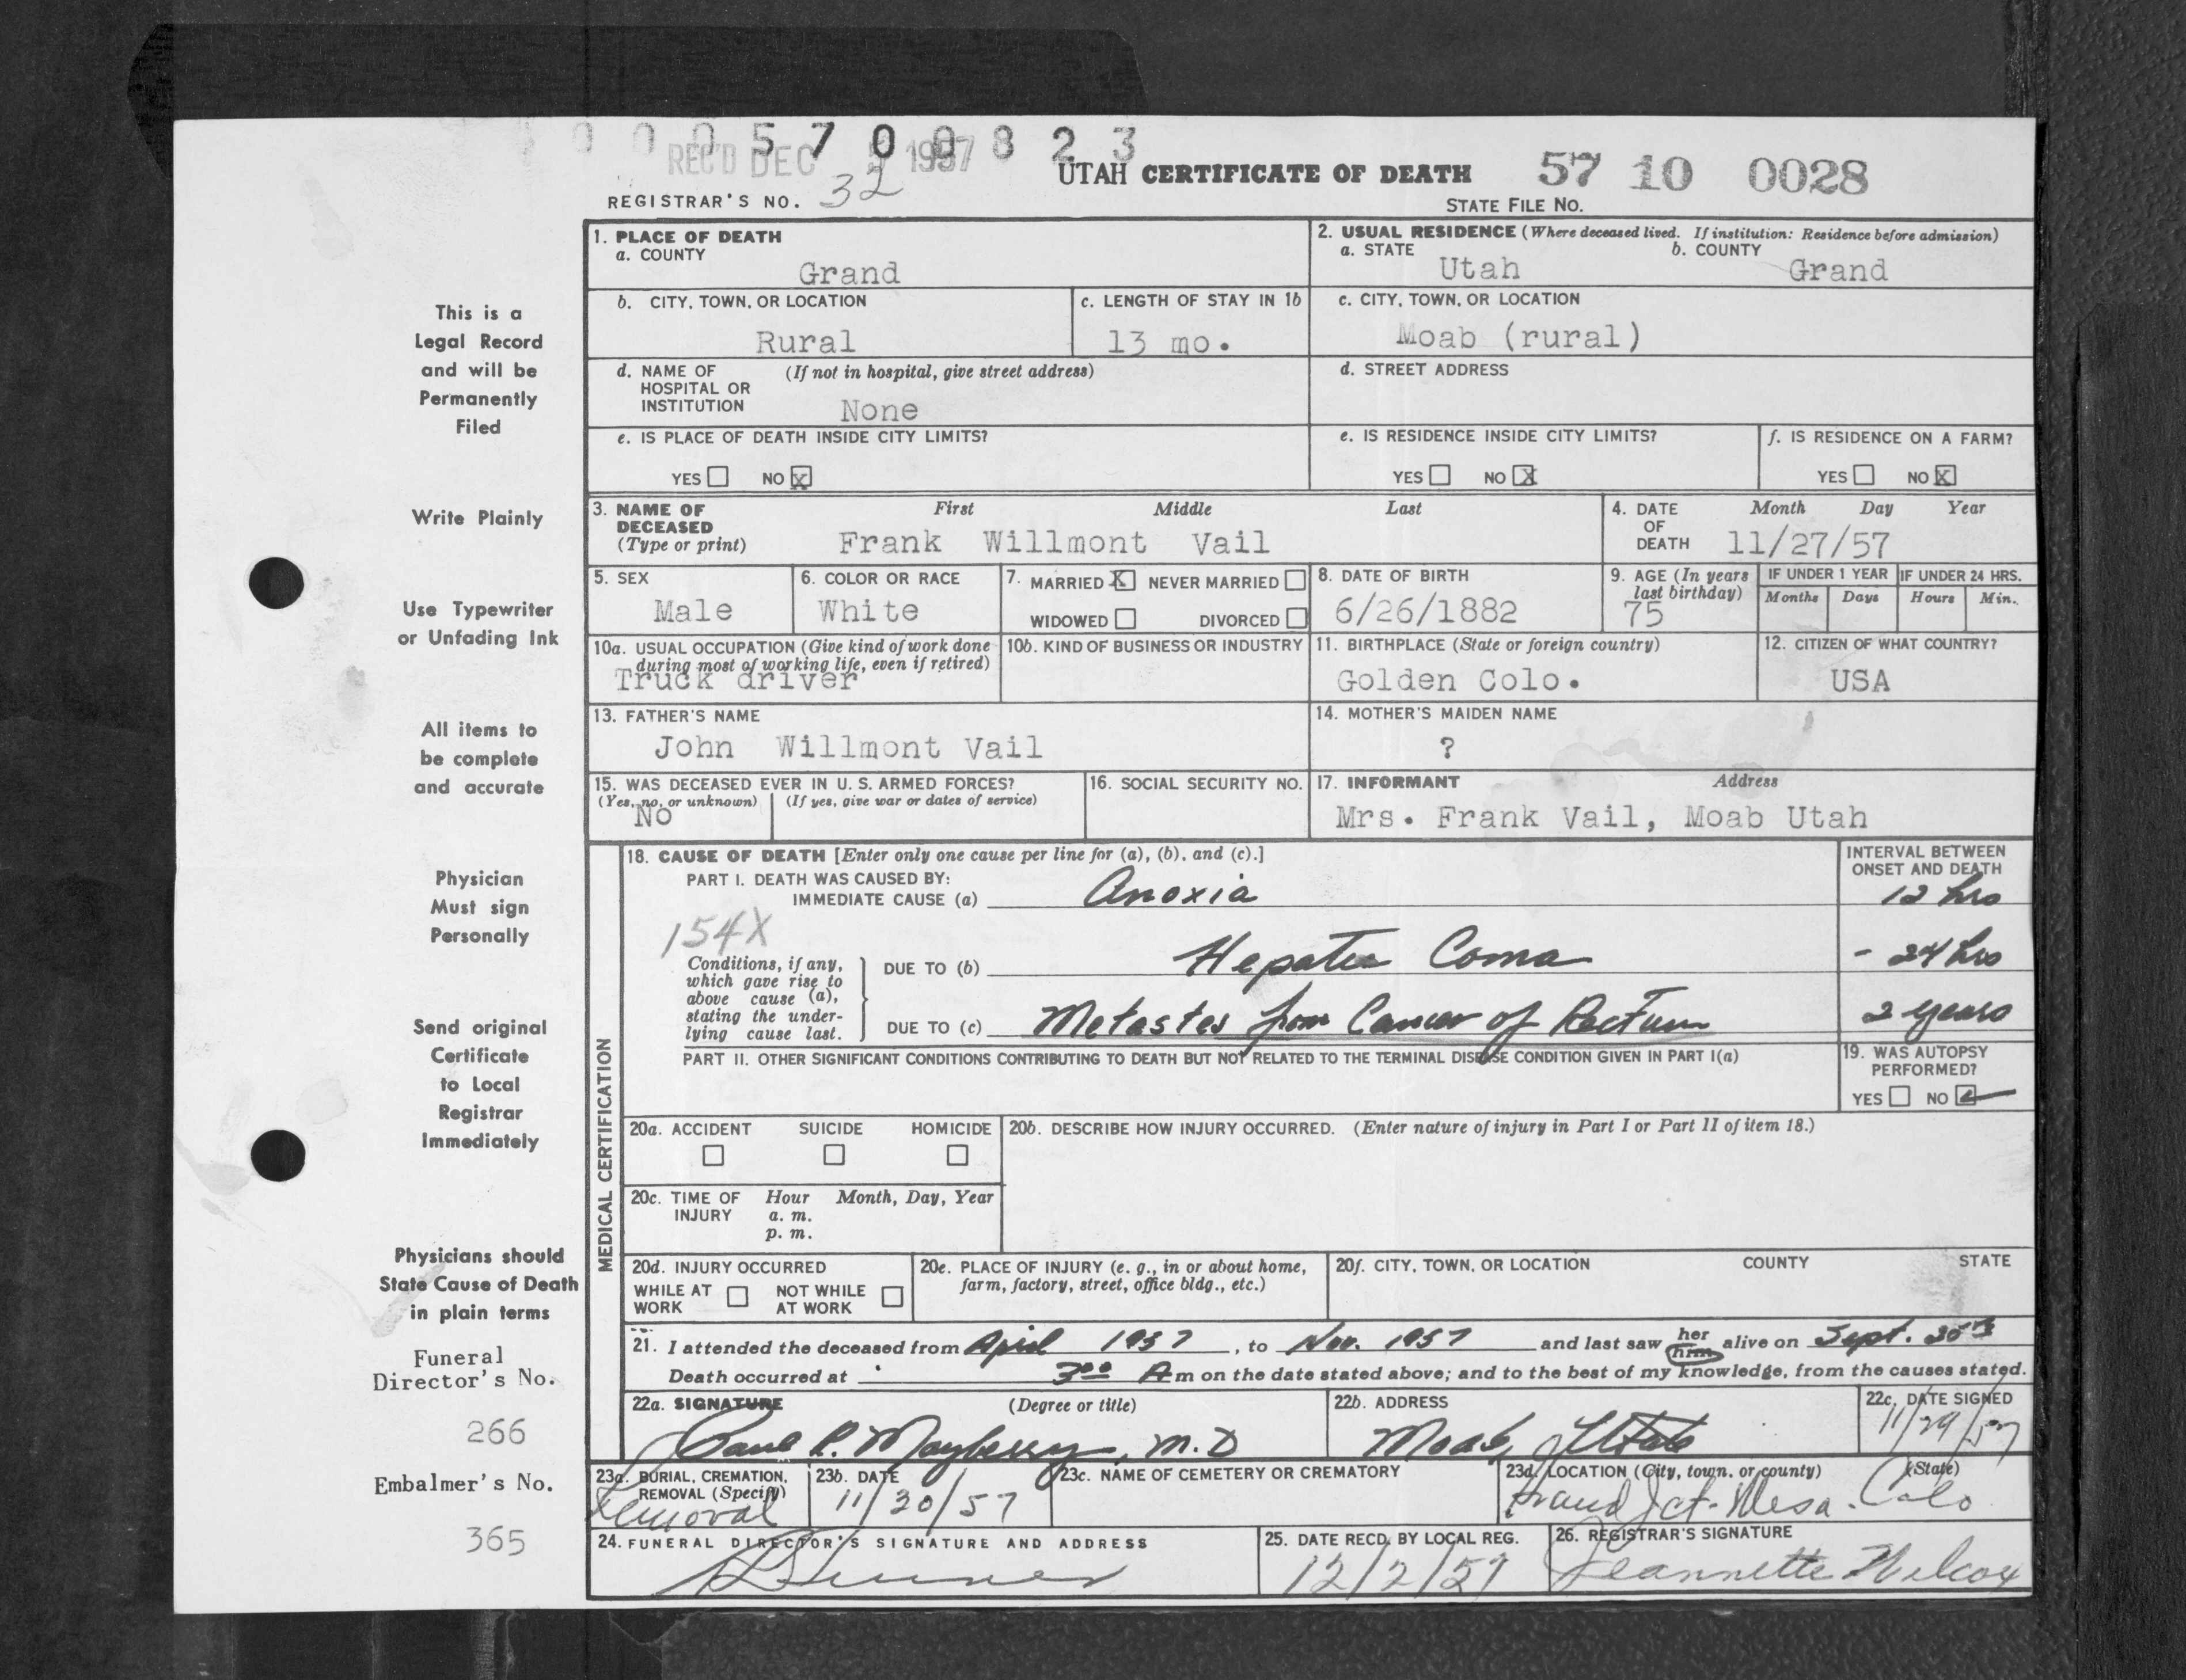 0 0 0 5 7 0 0 8 2 3
REC'D DEC 1957
UTAH CERTIFICATE OF DEATH 57 10 0028
REGISTRAR'S NO. 32 STATE FILE NO.
1. PLACE OF DEATH
a. COUNTY
Grand
2. USUAL RESIDENCE (Where deceased lived. If institution: Residence before admission)
a. STATE b. COUNTY
Utah Grand
b. CITY, TOWN, OR LOCATION
Rural
c. LENGTH OF STAY IN 1b
13 mo.
c. CITY, TOWN, OR LOCATION
Moab (rural)
d. NAME OF (If not in hospital, give street address)
HOSPITAL OR
INSTITUTION None
d. STREET ADDRESS
e. IS PLACE OF DEATH INSIDE CITY LIMITS?
YES NO X
e. IS RESIDENCE INSIDE CITY LIMITS?
YES NO X
f. IS RESIDENCE ON A FARM?
YES NO X
3. NAME OF First Middle Last
DECEASED
(Type or print) Frank Willmont Vail
4. DATE Month Day Year
OF
DEATH 11/27/57
5. SEX
Male
6. COLOR OR RACE
White
7. MARRIED X NEVER MARRIED
WIDOWED DIVORCED
8. DATE OF BIRTH
6/26/1882
9. AGE (In years
last birthday)
75
IF UNDER 1 YEAR IF UNDER 24 HRS.
Months Days Hours Min.
10a. USUAL OCCUPATION (Give kind of work done
during most of working life, even if retired)
Truck driver
10b. KIND OF BUSINESS OR INDUSTRY
11. BIRTHPLACE (State or foreign country)
Golden Colo.
12. CITIZEN OF WHAT COUNTRY?
USA
13. FATHER'S NAME
John Willmont Vail
14. MOTHER'S MAIDEN NAME
?
15. WAS DECEASED EVER IN U. S. ARMED FORCES?
(Yes, no, or unknown) (If yes, give war or dates of service)
No
16. SOCIAL SECURITY NO.
17. INFORMANT Address
Mrs. Frank Vail, Moab Utah
MEDICAL CERTIFICATION
18. CAUSE OF DEATH [Enter only one cause per line for (a), (b), and (c).]
INTERVAL BETWEEN
ONSET AND DEATH
PART I. DEATH WAS CAUSED BY:
IMMEDIATE CAUSE (a) Anoxia 12 hrs
154X
Conditions, if any,
which gave rise to
above cause (a),
stating the under-
lying cause last.
DUE TO (b) Hepatic Coma - 24 hrs
DUE TO (c) Metastes from Cancer of Rectum 2 years
PART II. OTHER SIGNIFICANT CONDITIONS CONTRIBUTING TO DEATH BUT NOT RELATED TO THE TERMINAL DISEASE CONDITION GIVEN IN PART I(a)
19. WAS AUTOPSY
PERFORMED?
YES NO
20a. ACCIDENT SUICIDE HOMICIDE
20b. DESCRIBE HOW INJURY OCCURRED. (Enter nature of injury in Part I or Part II of item 18.)
20c. TIME OF Hour Month, Day, Year
INJURY a. m.
p. m.
20d. INJURY OCCURRED
WHILE AT NOT WHILE
WORK AT WORK
20e. PLACE OF INJURY (e. g., in or about home,
farm, factory, street, office bldg., etc.)
20f. CITY, TOWN, OR LOCATION COUNTY STATE
21. I attended the deceased from April 1957, to Nov. 1957 and last saw her him alive on Sept. 30th
Death occurred at 3:00 A m on the date stated above; and to the best of my knowledge, from the causes stated.
22a. SIGNATURE (Degree or title)
Paul R. Mayberry, M.D
22b. ADDRESS
Moab, Utah
22c. DATE SIGNED
11/29/57
23a. BURIAL, CREMATION,
REMOVAL (Specify)
Removal
23b. DATE
11/30/57
23c. NAME OF CEMETERY OR CREMATORY
23d. LOCATION (City, town, or county) (State)
Grand Jct. Mesa. Colo
24. FUNERAL DIRECTOR'S SIGNATURE AND ADDRESS
25. DATE RECD. BY LOCAL REG.
12/2/57
26. REGISTRAR'S SIGNATURE
Jeannette Wilcox
This is a
Legal Record
and will be
Permanently
Filed
Write Plainly
Use Typewriter
or Unfading Ink
All items to
be complete
and accurate
Physician
Must sign
Personally
Send original
Certificate
to Local
Registrar
Immediately
Physicians should
State Cause of Death
in plain terms
Funeral
Director's No.
266
Embalmer's No.
365